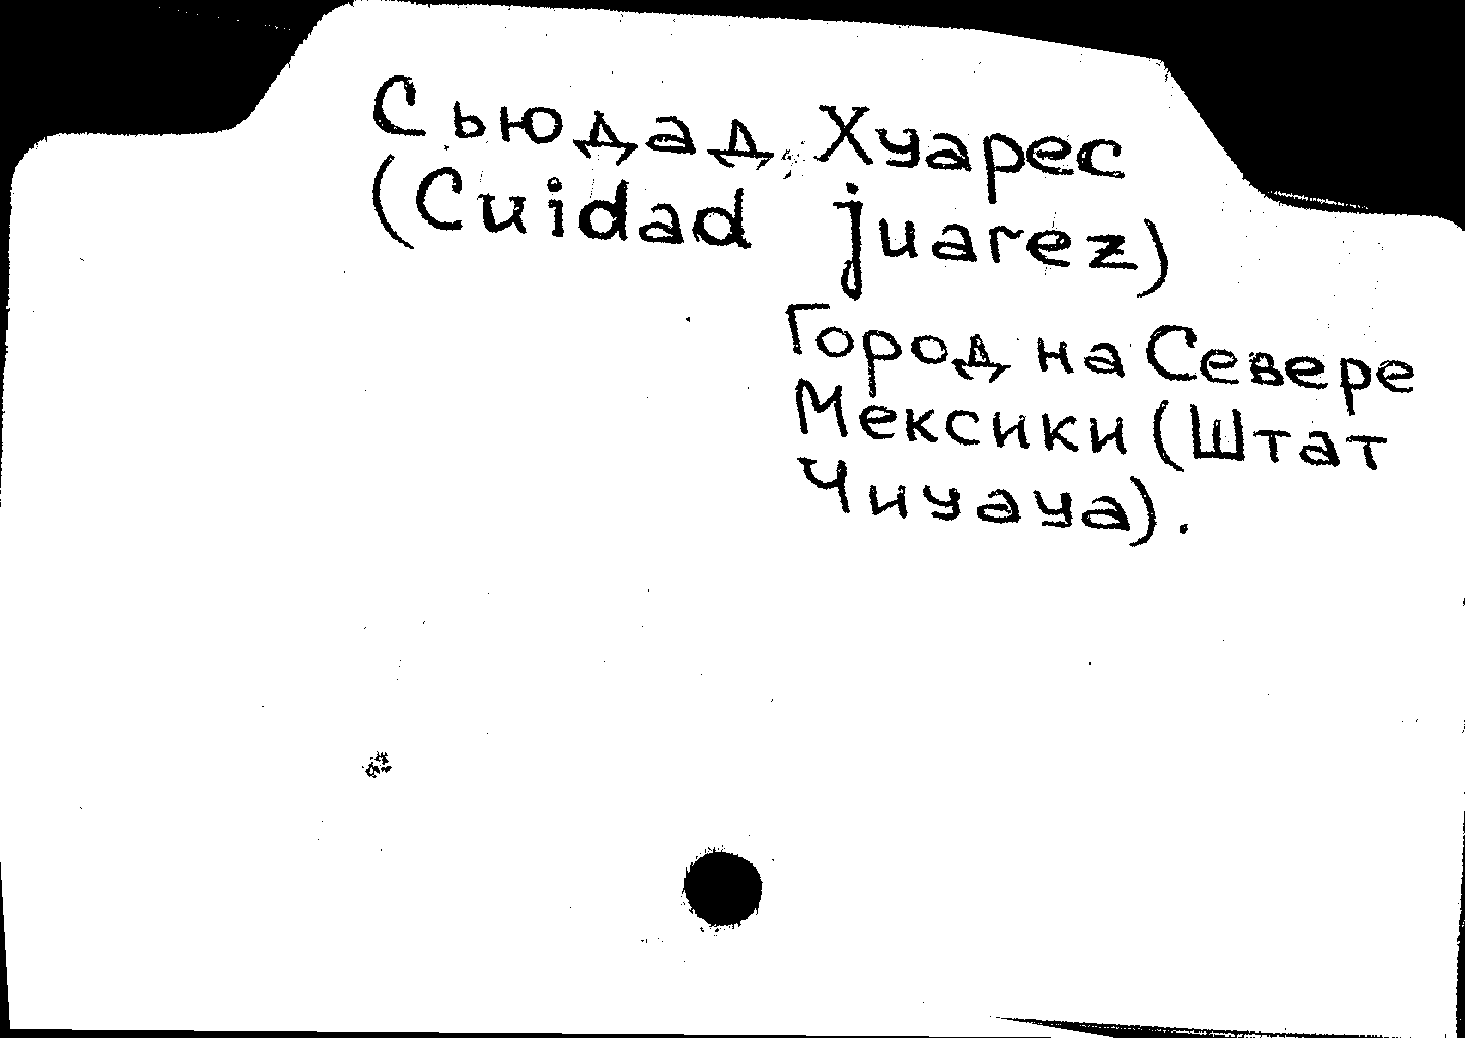 Сьюдад Хуарес
(Cuidad juarez)
Город на Севере
Мексики (Штат
Чиуауа).